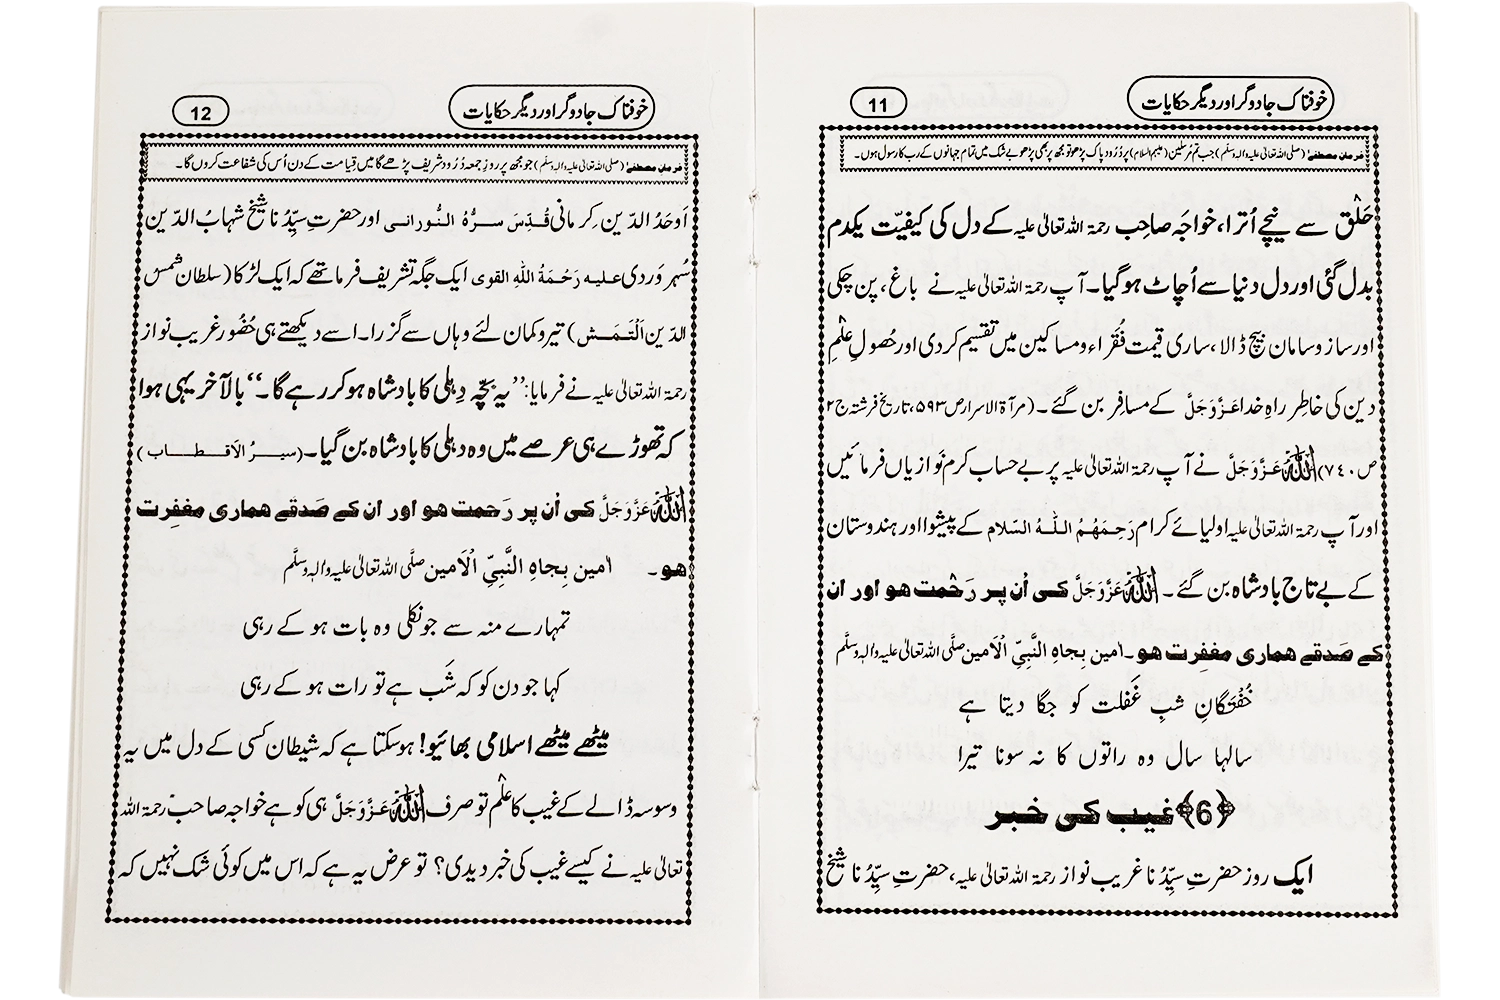 خوفناک جادوگر اور دیگر حکایات
11
فرمانِ مصطفےٰ (صلی اللہ تعالیٰ علیہ والہ وسلم) جب تم مُرسلین (علیہم السلام) پر دُرُود پاک پڑھو تو مجھ پر بھی پڑھو بے شک میں تمام جہانوں کے رب کا رسول ہوں۔
حَلْق سے نیچے اُترا، خواجَہ صاحِب رحمۃ اللہ تعالیٰ علیہ کے دل کی کیفیّت یکدم
بدل گئی اور دل دنیا سے اُچاٹ ہو گیا۔ آپ رحمۃ اللہ تعالیٰ علیہ نے باغ، پن چکی
اور ساز و سامان بیچ ڈالا، ساری قیمت فُقَراء و مساکین میں تقسیم کر دی اور حُصولِ علْمِ
دین کی خاطر راہِ خدا عَزَّوَجَلَّ کے مسافر بن گئے۔ (مرآۃ الاسرار ص ۵۹۳، تاریخ فرشتہ ج ۲
ص ۷۴۰) اللّٰہ عَزَّوَجَلَّ نے آپ رحمۃ اللہ تعالیٰ علیہ پر بے حساب کرم نَوازیاں فرمائیں
اور آپ رحمۃ اللہ تعالیٰ علیہ اولیائے کرام رَحِمَهُمُ اللّٰهُ السّلام کے پیشوا اور ہندوستان
کے بے تاج بادشاہ بن گئے۔ اللّٰہ عَزَّوَجَلَّ کی اُن پر رَحْمت ہو اور ان
کے صَدقے ہماری مغفِرت ہو۔ امین بِجاہِ النَّبِیِّ الْاَمین صلَّی اللہ تعالیٰ علیہ والہٖ وسلَّم
خُفْتَگانِ شبِ غَفلت کو جگا دیتا ہے
سالہا سال وہ راتوں کا نہ سونا تیرا
﴿6﴾ غیب کی خبر
ایک روز حضرتِ سیِّدُنا غریب نواز رحمۃ اللہ تعالیٰ علیہ، حضرتِ سیِّدُنا شیخ
خوفناک جادوگر اور دیگر حکایات
12
فرمانِ مصطفےٰ (صلی اللہ تعالیٰ علیہ والہ وسلم) جو مجھ پر روزِ جمعہ دُرُود شریف پڑھے گا میں قِیامت کے دن اُس کی شفاعت کروں گا۔
اَوحَدُ الدّین کِرمانی قُدِّسَ سرُّہُ النُّورانی اور حضرتِ سیِّدُنا شیخ شہابُ الدّین
سُہروَردی علیہ رَحْمَةُ اللهِ القوی ایک جگہ تشریف فرما تھے کہ ایک لڑکا (سلطان شمس
الدّین اَلْتَمَش) تیر و کمان لئے وہاں سے گزرا۔ اسے دیکھتے ہی حُضُور غریب نواز
رحمۃ اللہ تعالیٰ علیہ نے فرمایا: ’’یہ بچّہ دِہلی کا بادشاہ ہو کر رہے گا۔‘‘ بالآخر یہی ہوا
کہ تھوڑے ہی عرصے میں وہ دہلی کا بادشاہ بن گیا۔ (سیرُ الاَقطاب)
اللّٰہ عَزَّوَجَلَّ کی اُن پر رَحمت ہو اور ان کے صَدقے ہماری مغفِرت
ہو۔ امین بِجاہِ النَّبِیِّ الْاَمین صلَّی اللہ تعالیٰ علیہ والہٖ وسلَّم
تمہارے منہ سے جو نکلی وہ بات ہو کے رہی
کہا جو دن کو کہ شَب ہے تو رات ہو کے رہی
میٹھے میٹھے اسلامی بھائیو! ہو سکتا ہے کہ شیطان کسی کے دل میں یہ
وسوسہ ڈالے کے غیب کا علْم تو صرف اللّٰہ عَزَّوَجَلَّ ہی کو ہے خواجہ صاحب رحمۃ اللہ
تعالیٰ علیہ نے کیسے غیب کی خبر دیدی؟ تو عرض یہ ہے کہ اس میں کوئی شک نہیں کہ